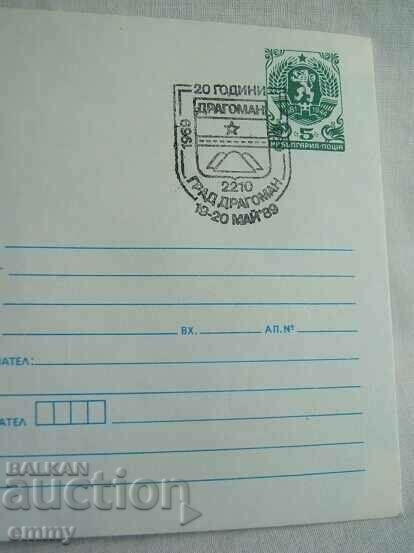 20 ГОДИНИ
ДРАГОМАН
1969
2210
ГРАД ДРАГОМАН
19-20 МАЙ'89
5
НР БЪЛГАРИЯ·ПОЩА
ВХ.
АП.№
АТЕЛ:
АТЕЛ
BALKAN
auction
emmy